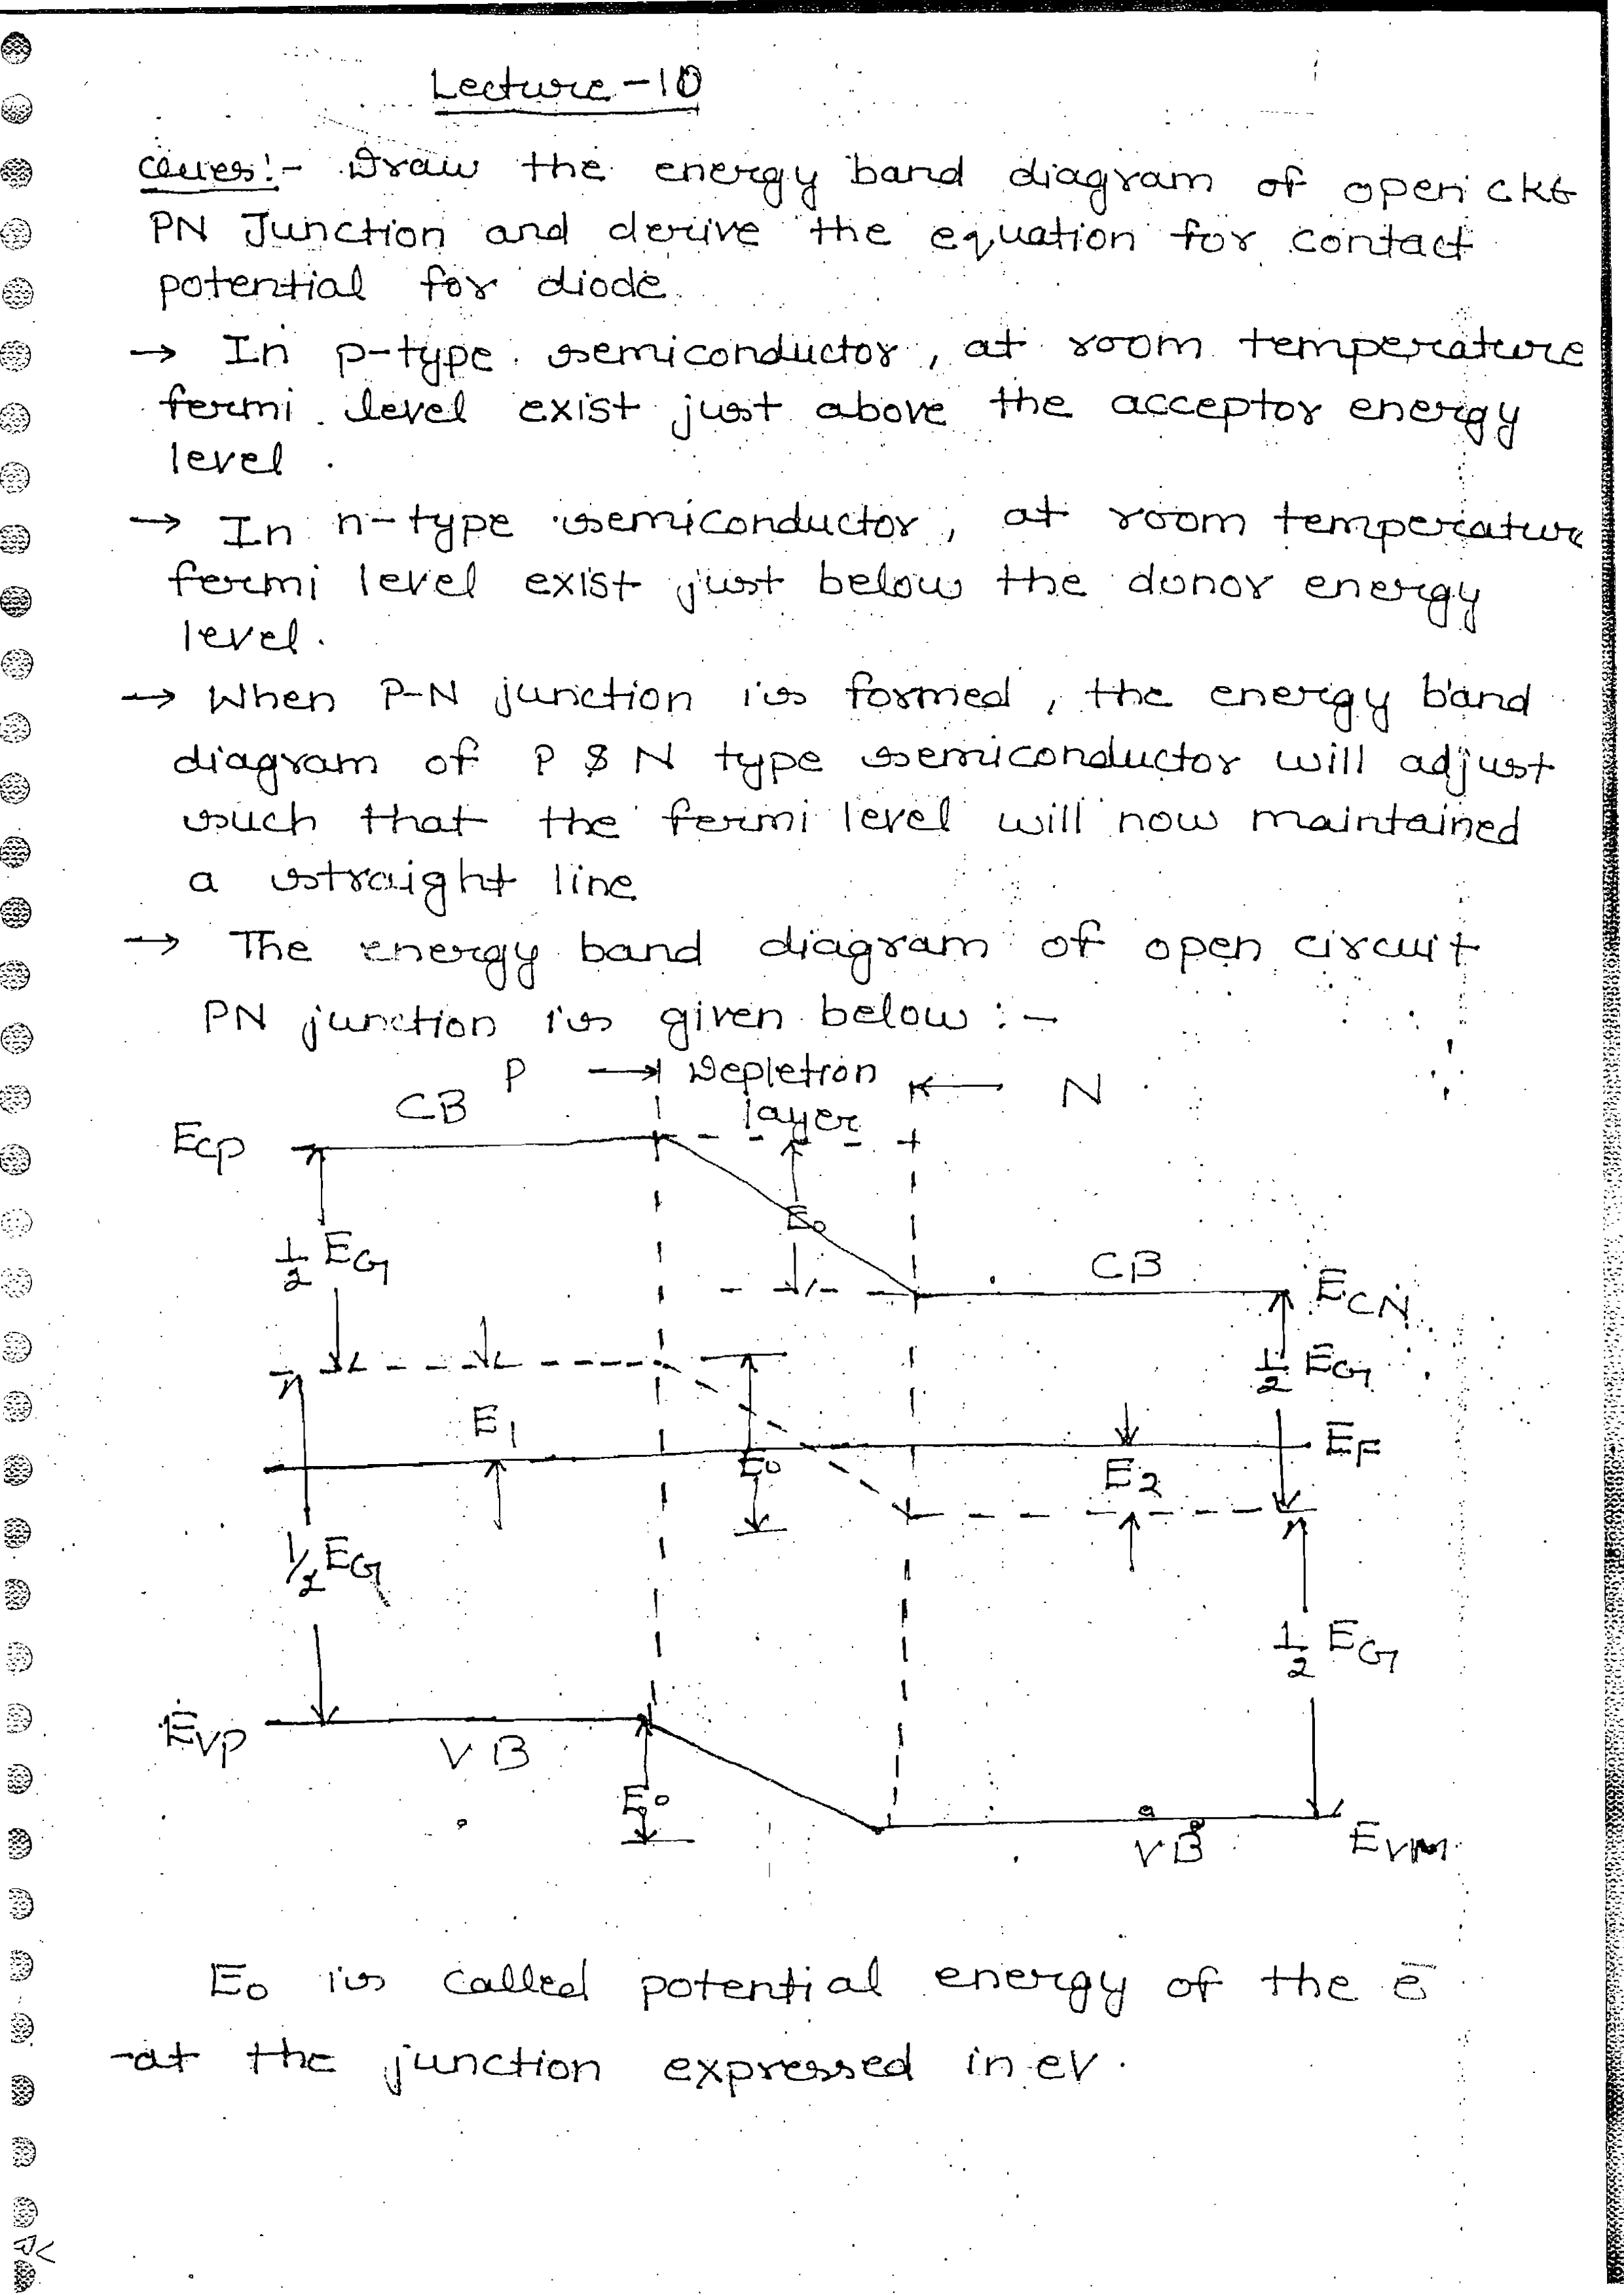 Lecture-10
Ques:- Draw the energy band diagram of open ckt
PN Junction and derive the equation for contact
potential for diode.
→ In p-type semiconductor, at room temperature
fermi level exist just above the acceptor energy
level.
→ In n-type semiconductor, at room temperature
fermi level exist just below the donor energy
level.
→ When P-N junction is formed, the energy band
diagram of P & N type semiconductor will adjust
such that the fermi level will now maintained
a straight line
→ The energy band diagram of open circuit
PN junction is given below :-
P → Depletion ← N
layer
CB
ECP
E0
1/2 EG
CB
ECN
1/2 EG
E1
EF
E0
E2
1/2 EG
1/2 EG
EVP
VB
E0
VB
E0 is called potential energy of the ē
at the junction expressed in eV.